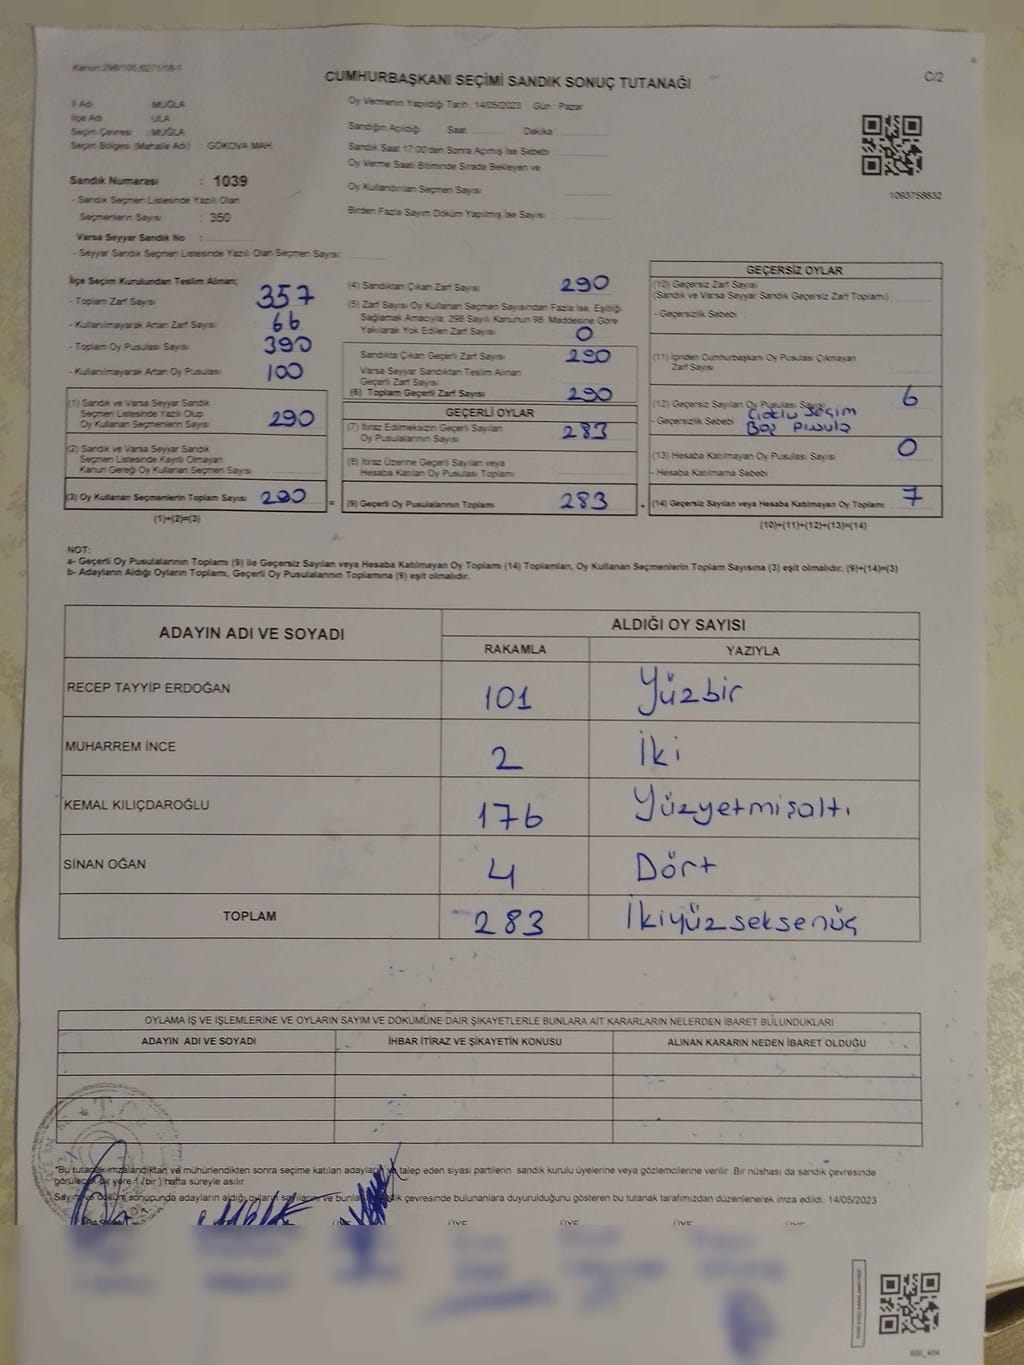 Kanun:298/105,6271/18-1
CUMHURBAŞKANI SEÇİMİ SANDIK SONUÇ TUTANAĞI
C/2
İl Adı : MUĞLA
İlçe Adı : ULA
Seçim Çevresi : MUĞLA
Seçim Bölgesi (Mahalle Adı) : GÖKOVA MAH.
Sandık Numarası : 1039
- Sandık Seçmen Listesinde Yazılı Olan
Seçmenlerin Sayısı : 350
Varsa Seyyar Sandık No :
- Seyyar Sandık Seçmen Listesinde Yazılı Olan Seçmen Sayısı:
Oy Vermenin Yapıldığı Tarih :14/05/2023 Gün : Pazar
Sandığın Açıldığı Saat Dakika
Sandık Saat 17:00'den Sonra Açılmış İse Sebebi :
Oy Verme Saati Bitiminde Sırada Bekleyen ve
Oy Kullandırılan Seçmen Sayısı
Birden Fazla Sayım Döküm Yapılmış İse Sayısı :
1093758832
İlçe Seçim Kurulundan Teslim Alınan;
- Toplam Zarf Sayısı 357
- Kullanılmayarak Artan Zarf Sayısı 66
- Toplam Oy Pusulası Sayısı 390
- Kullanılmayarak Artan Oy Pusulası 100
(1) Sandık ve Varsa Seyyar Sandık
Seçmen Listesinde Yazılı Olup
Oy Kullanan Seçmenlerin Sayısı 290
(2) Sandık ve Varsa Seyyar Sandık
Seçmen Listesinde Kayıtlı Olmayan
Kanun Gereği Oy Kullanan Seçmen Sayısı
(3) Oy Kullanan Seçmenlerin Toplam Sayısı 290 =
(1)+(2)=(3)
(4) Sandıktan Çıkan Zarf Sayısı 290
(5) Zarf Sayısı Oy Kullanan Seçmen Sayısından Fazla İse, Eşitliği
Sağlamak Amacıyla; 298 Sayılı Kanunun 98. Maddesine Göre
Yakılarak Yok Edilen Zarf Sayısı 0
Sandıkta Çıkan Geçerli Zarf Sayısı 290
Varsa Seyyar Sandıktan Teslim Alınan
Geçerli Zarf Sayısı
(6) Toplam Geçerli Zarf Sayısı 290
GEÇERLİ OYLAR
(7) İtiraz Edilmeksizin Geçerli Sayılan
Oy Pusulalarının Sayısı 283
(8) İtiraz Üzerine Geçerli Sayılan veya
Hesaba Katılan Oy Pusulası Toplamı
(9) Geçerli Oy Pusulalarının Toplamı 283 +
GEÇERSİZ OYLAR
(10) Geçersiz Zarf Sayısı
(Sandık ve Varsa Seyyar Sandık Geçersiz Zarf Toplamı) :
- Geçersizlik Sebebi :
(11) İçinden Cumhurbaşkanı Oy Pusulası Çıkmayan
Zarf Sayısı
(12) Geçersiz Sayılan Oy Pusulası Sayısı 6
- Geçersizlik Sebebi seçim
Boş Pusula
(13) Hesaba Katılmayan Oy Pusulası Sayısı 0
- Hesaba Katılmama Sebebi
(14) Geçersiz Sayılan veya Hesaba Katılmayan Oy Toplamı 7
(10)+(11)+(12)+(13)=(14)
NOT:
a- Geçerli Oy Pusulalarının Toplamı (9) ile Geçersiz Sayılan veya Hesaba Katılmayan Oy Toplamı (14) Toplamları, Oy Kullanan Seçmenlerin Toplam Sayısına (3) eşit olmalıdır. (9)+(14)=(3)
b- Adayların Aldığı Oyların Toplamı, Geçerli Oy Pusulalarının Toplamına (9) eşit olmalıdır.
ADAYIN ADI VE SOYADI ALDIĞI OY SAYISI
RAKAMLA YAZIYLA
RECEP TAYYİP ERDOĞAN 101 Yüzbir
MUHARREM İNCE 2 İki
KEMAL KILIÇDAROĞLU 176 Yüzyetmişaltı
SİNAN OĞAN 4 Dört
TOPLAM 283 İkiyüzseksenüç
OYLAMA İŞ VE İŞLEMLERİNE VE OYLARIN SAYIM VE DÖKÜMÜNE DAİR ŞİKAYETLERLE BUNLARA AİT KARARLARIN NELERDEN İBARET BULUNDUKLARI
ADAYIN ADI VE SOYADI İHBAR İTİRAZ VE ŞİKAYETİN KONUSU ALINAN KARARIN NEDEN İBARET OLDUĞU
T.C.
*Bu tutanak imzalandıktan ve mühürlendikten sonra seçime katılan adaylar talep eden siyasi partilerin sandık kurulu üyelerine veya gözlemcilerine verilir. Bir nüshası da sandık çevresinde
görülecek bir yere 1 (bir) hafta süreyle asılır.
Sayım ve döküm sonucunda adayların aldığı oyların sayılarını ve çevresinde bulunanlara duyurulduğunu gösteren bu tutanak tarafımızdan düzenlenerek imza edildi. 14/05/2023
ÜYE ÜYE ÜYE ÜYE